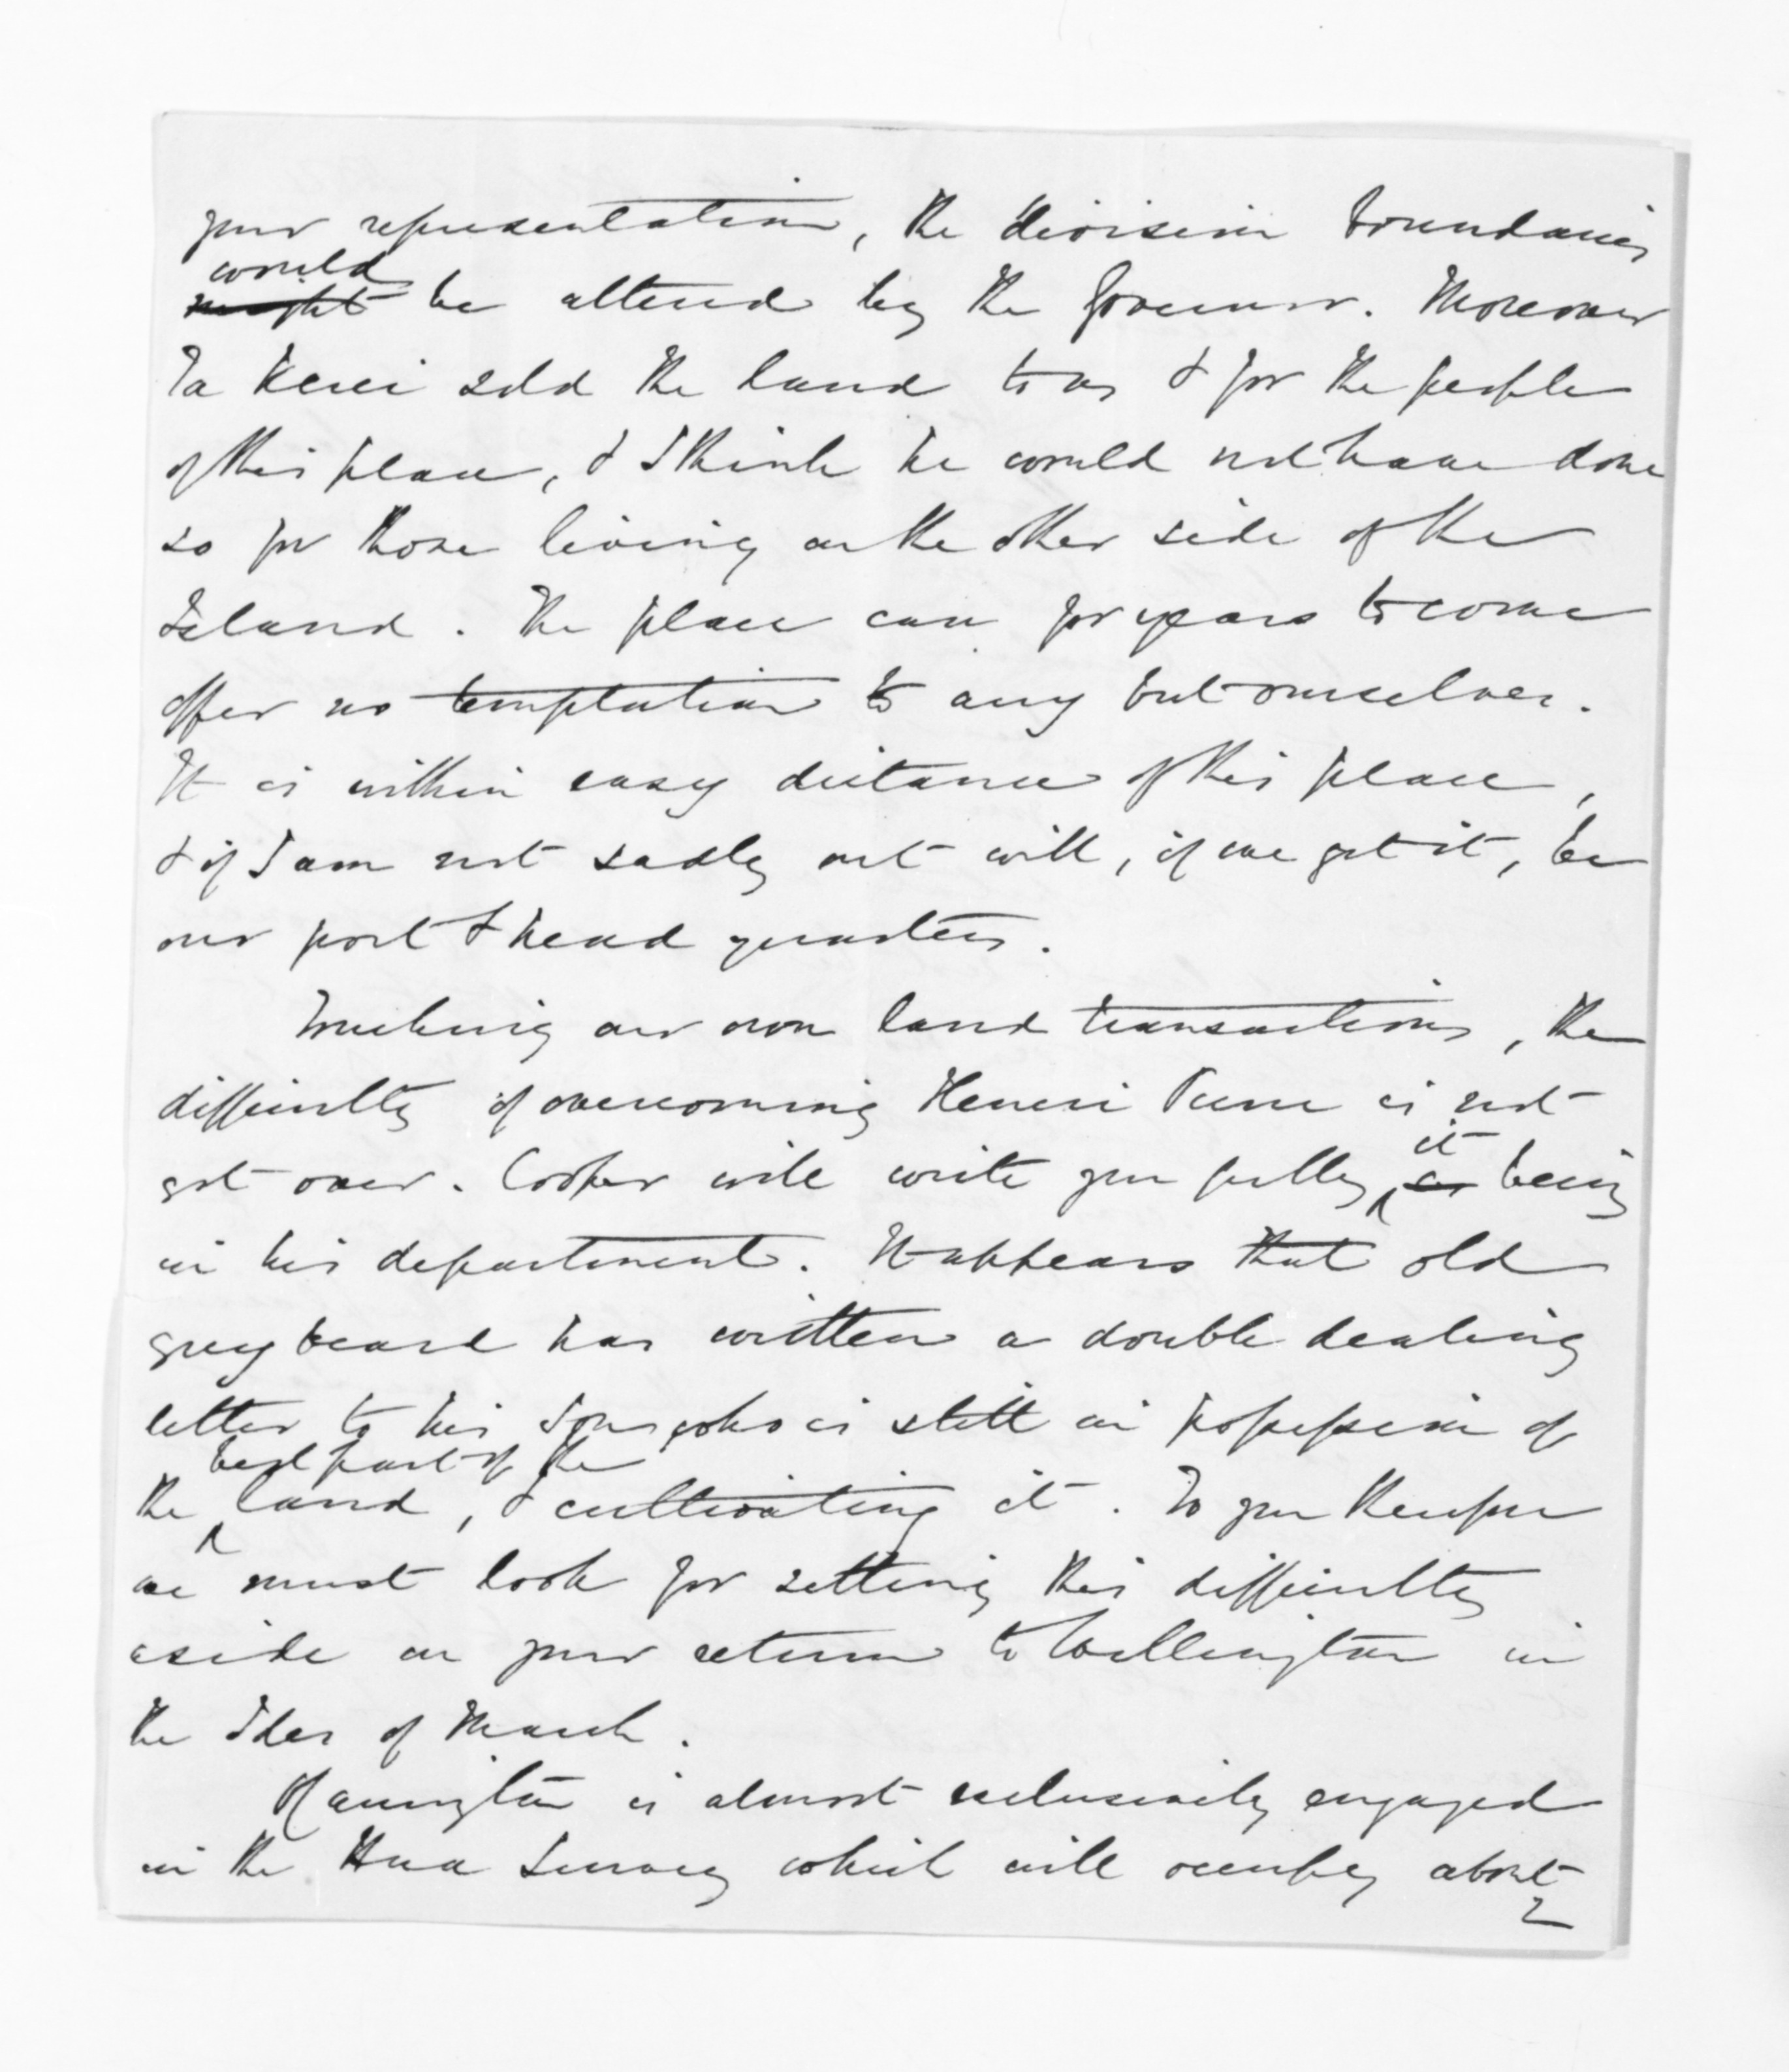 your representation, the division boundaries
would
might be altered by the Governor. Moreover
Te Kerei sold the land to us & for the people
of this place, & I think he would not have done
so for those living on the other side of the
Island. The place can for years to come
offer no temptation to any but ourselves.
It is within easy distance of this place,
& if I am not sadly out will, if we get it, be
our port & head quarters.
Touching our own land transactions, the
difficulty of overcoming Hemeri is not
it
got over. Cooper will write you fully, as being
in his department. It appears that old
grey beard has written a double dealing
letter to his Son, who is still in possession of
best part of the
the land, & cultivating it. To you therefore
we must look for setting this difficulty
aside on your return to Wellington in
the Ides of March.
is almost exclusively engaged
in the Hua Survey which will occupy about
2